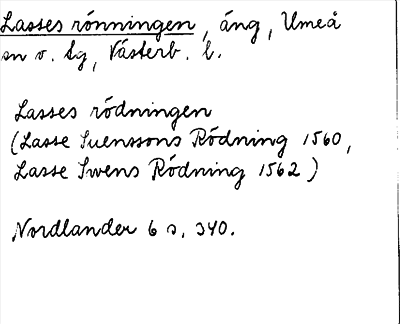 Lasses rönningen, äng, Umeå
sn o. lg, Västerb. l.
Lasses rödningen
(Lasse Suenssons Rödning 1560,
Lasse Swens Rödning 1562)
Nordlander 6 s. 340.